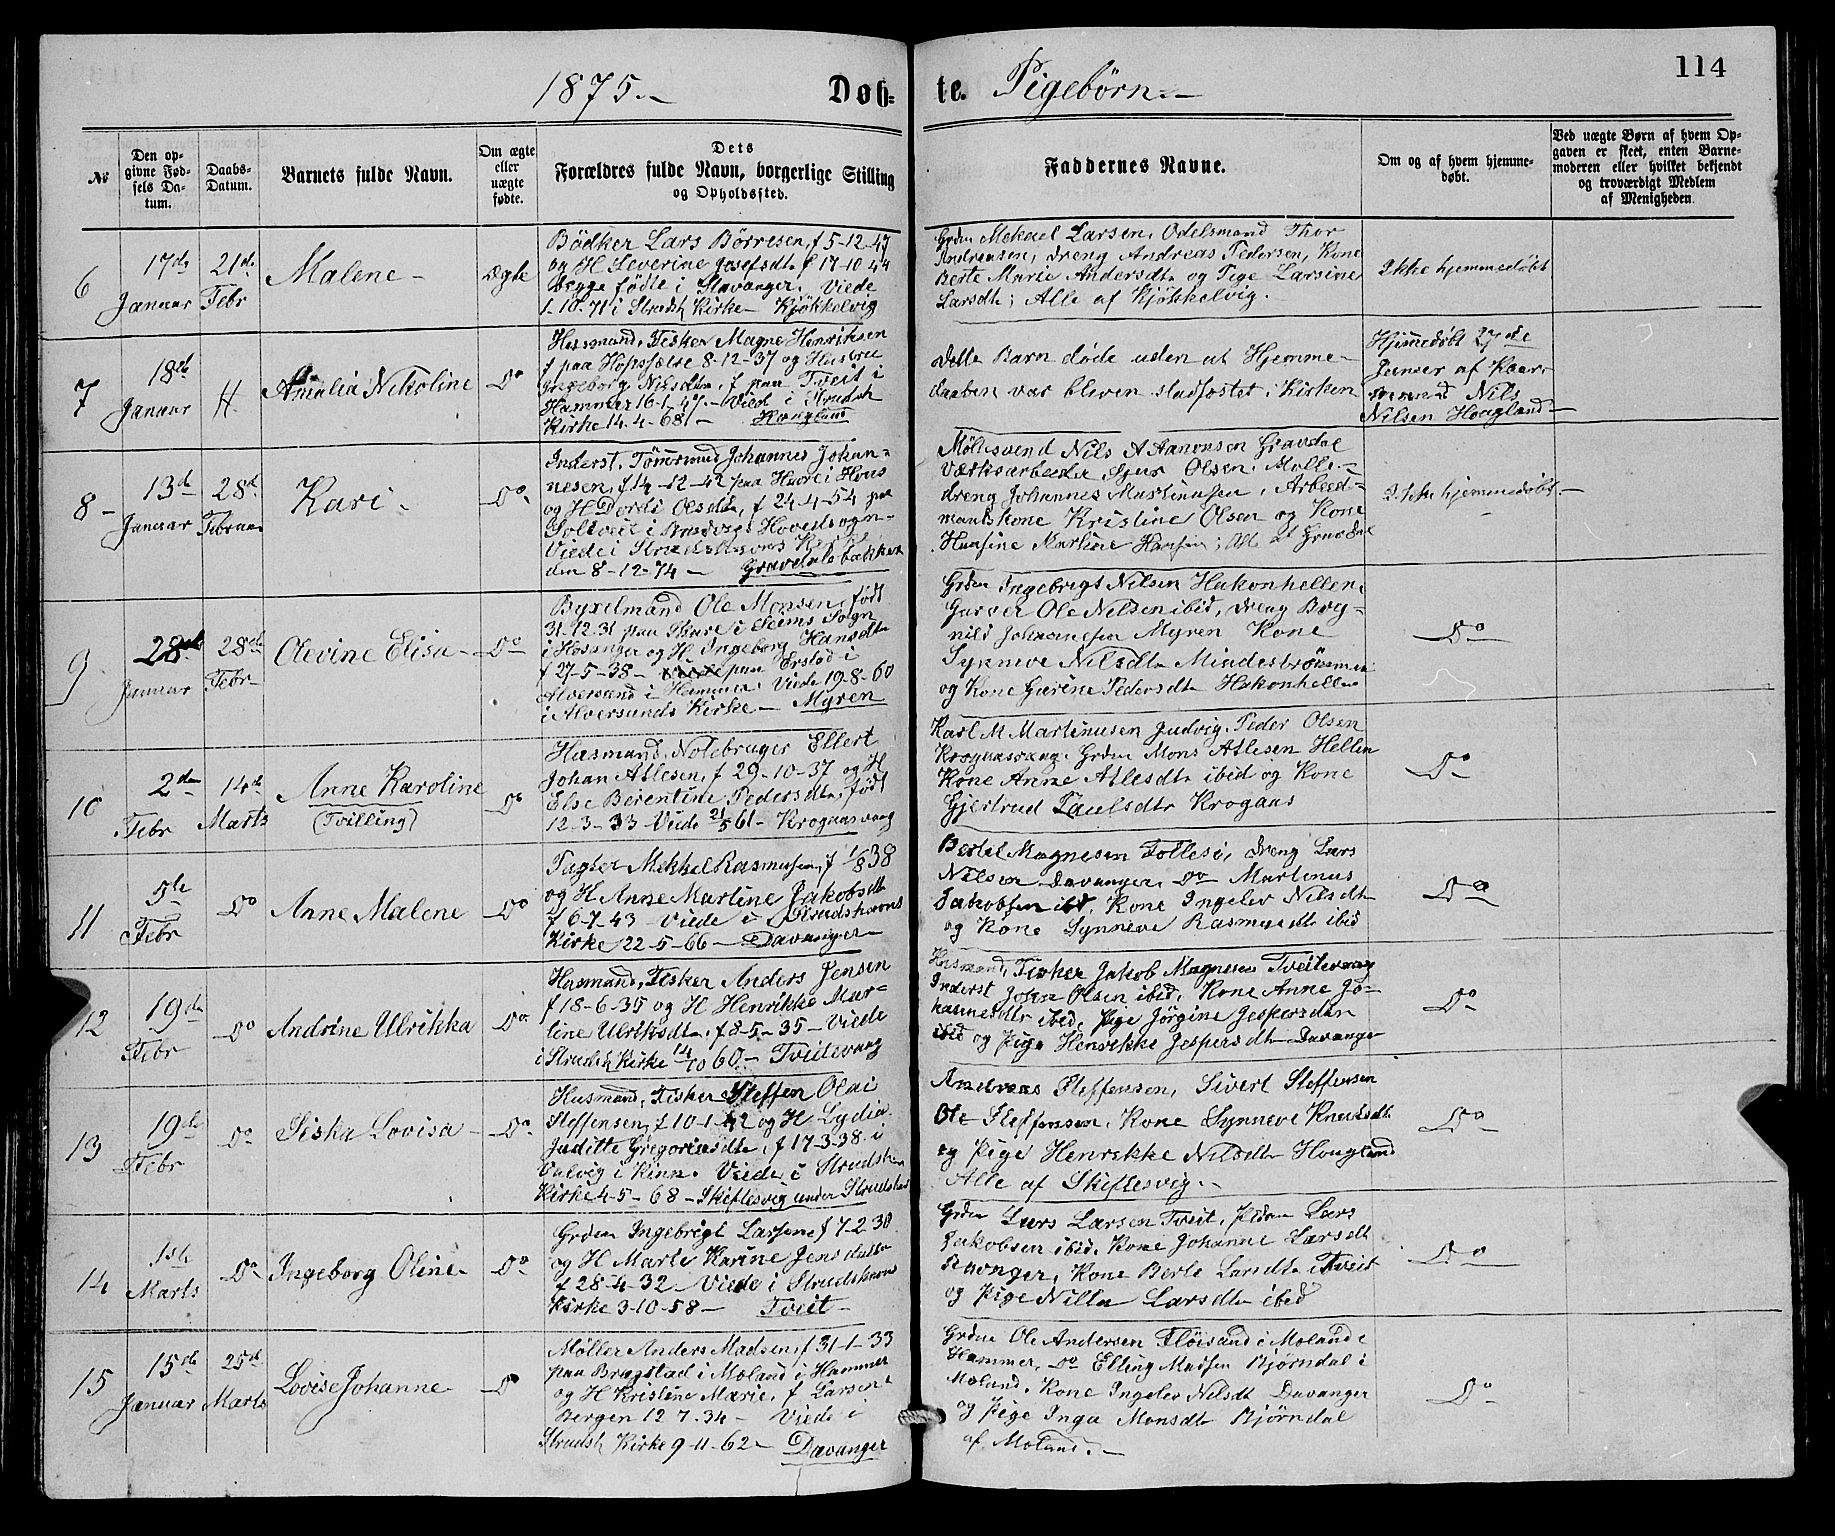 114
1875.
Døb-
te.
Pigebørn.
№
Den op-
givne Fød-
sels Da-
tum.
Daabs-
Datum.
Barnets fulde Navn.
Om ægte
eller
uægte
fødte.
Dets
Forældres fulde Navn, borgerlige Stilling
og Opholdssted.
Faddernes Navne.
Om og af hvem hjemme-
døbt.
Ved uægte Børn af hvem Op-
gaven er skeet, enten Barne-
moderen eller hvilket bekjendt
og troværdigt Medlem
af Menigheden.
6
17de
Januar
21de
Febr
Malene
Ægte
Bødker Lars Børresen, f 5-12-47
og H Severine Josefsdtr f 17-10-44
Begge fødte i Stavanger. Viede
1-10-71 i Strudsh Kirke Kjøkkelvig
Grdm Mekael Larsen, Odelsmand Thor
Andreasen, Dreng Andreas Pedersen, Kone
Berte Marie Andersdtr og Pige Larsine
Larsdtr; Alle af Kjøkkelvig.
Ikke hjemmedøbt
7
18de
Januar
H.
Amalia Nikoline
Do
Husmand, Fisker Magne Henriksen
f paa Hopsfælse 8-12-37 og Hustru
Ingeborg Nilsdtr, f paa Tveit i
Hammer 16-1-47. Viede i Strudsh
Kirke 14-4-68. Hougland
Dette Barn døde uden at Hjemme-
daaben var bleven stadfæstet i Kirken
Hjemmedøbt 27de
Januar af Kaar-
mand Nils
Nilsen Hougland
8
13de
Januar
28de
Februar
Kari
Do
Inderst, Tømermd Johannes Johan-
nesen, f 14-12-42 paa Huvre i Hous
og H Dordi Olsdtr, f 24-4-54 paa
Solveit i Hovedsogn
Viede i Strudshavns Kirke
den 8-12-74 Gravdalsbakken
Møllesvend Nils A Aanonsen Gravdal
Værksarbeider Sjur Olsen, Mølle-
dreng Johannes Martinussen, Arbeid-
mandskone Kristine Olsen og Kone
Hansine Martine Hansen; Alle af Gravdal
Ikke hjemmedøbt
9
28de
Januar
28de
Febr
Olevine Elisa
Do
Byxelmand Ole Monsen, født
31-12-31 paa Skare i Eleims Sogn
i Hosanger og H Ingeborg Hansdtr
f 27-5-38 paa Erstad i
Alversund i Hammer. Viede 19-8-60
i Alversunds Kirke Myren
Grdm Ingebrigt Nilsen Hakonhellen
Garver Ole Nilsen ibid, Dreng Bog-
nild Johannesen Myren Kone
Synneve Nilsdtr Mindestrømmen
og Kone Gurine Pedersdtr Hakonhellen
Do
10
2den
Febr
14de
Marts
Anne Karoline
(Tvilling)
Do
Husmand, Notebruger Ellert
Johan Atlesen, f 29-10-37 og H
Else Berentine Pedersdtr, født
12-3-33 Viede 21/5 61 Krogaasvaag
Karl M Martinusen Ludvig Peder Olsen
Krogaasvaag. Grdm Mons Atlesen Hellen
Kone Anne Atlesdtr ibid og Kone
Gjertrud Paulsdtr Krogaas
Do
11
5te
Febr
Do
Anne Malene
Do
Pagter Mekkel Rasmusen, f 1/8 38
og H Anne Martine Jakobsdtr
f 6-7-43 Viede i Strudshavns
Kirke 22-5-66 Davanger
Bertel Magnesen Follesø, Dreng Lars
Nilsen Davanger, Do Martinus
Jakobsen ibd, Kone Ingelev Nilsdtr
og Kone Synneve Rasmusdtr ibid
Do
12
19de
Febr
Do
Andrine Ulrikka
Do
Husmand, Fisker Anders Jensen
f 18-6-35 og H Henrikke Mar-
tine Ulriksdtr, f 8-5-35 Viede
i Strudsh Kirke 14/10 60 Tveitevaag
Husmand, Fisker Jakob Magnesen Tveitevaag
Inderst John Olsen ibid, Kone Anne Jo-
hannesdtr ibid, Pige Jørgine Jespersdtr
ibid og Pige Henrikke Jespersdtr Davanger
Do
13
19de
Febr
Do
Siska Lovisa
Do
Husmand, Fisker Steffen Olai
Steffensen, f 10-1-42 og H Lydia
Juditte Gregoriusdtr, f 17-3-38 i
Valvig i Kinn. Viede i Strudshavn
Kirke 4-5-68 Skiftesvig under Strudshavn
Andreas Steffensen, Sivert Steffensen
Ole Steffensen, Kone Synneve Knutsdtr
og Pige Henrikke Nilsdtr Hougland
Alle af Skiftesvig.
Do
14
1ste
Marts
Do
Ingeborg Oline
Do
Grdm Ingebrigt Larsen f 7-2-30
og H Marte Karine Jensdatter
f 28-4-32 Viede i Strudshavns
Kirke 3-10-58 Tveit
Grdm Lars Larsen Tveit, Lars
Jakobsen ibid, Kone Johanne Larsdtr
Davanger, Kone Berte Larsdtr Tveit
og Pige Nilla Larsdtr ibid
Do
15
15de
Januar
25de
Marts
Lovise Johanne
Do
Møller Anders Madsen, f 31-1-33
paa Bragstad i Moland i Hammer
og H Kristine Marie, f Larsen i
Bergen 12 7-34 Viede i
Strudsh Kirke 9-11-62 Davanger
Grdm Ole Andersen Fløisand i Moland i
Hammer, Do Elling Madsen Bjørndal i
Moland, Kone Ingelev Nilsdt Davanger
og Pige Inga Monsdtr Bjørndal
af Moland.
Do